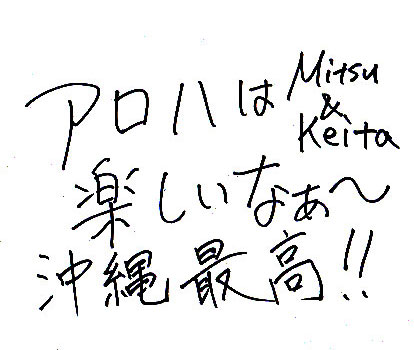 アロハは
Mitsu
&
Keita
楽しいなぁ〜
沖縄最高!!